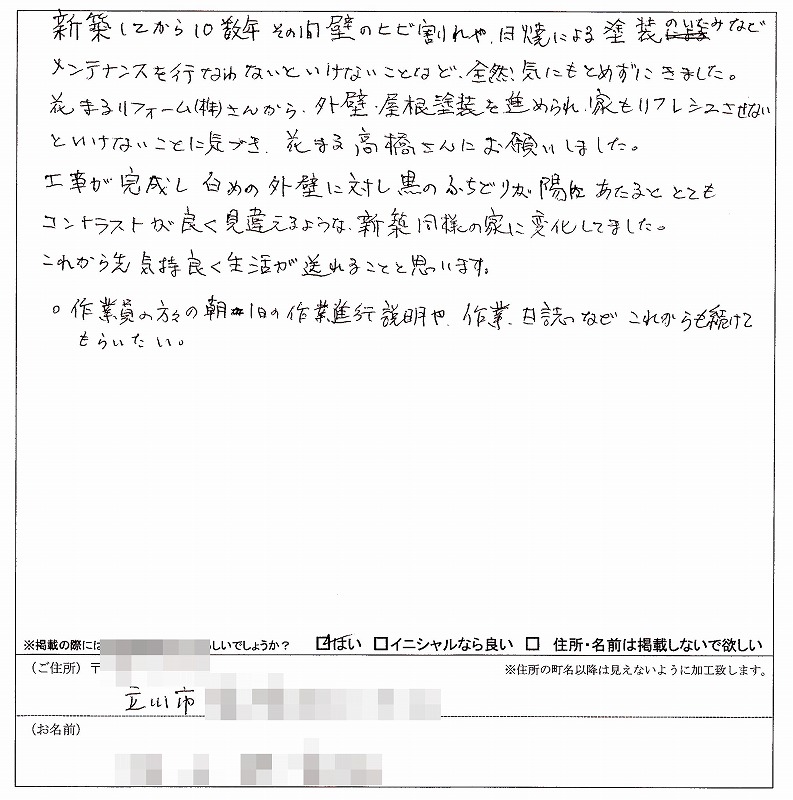 新築してから10数年その間壁のヒビ割れや、日焼による塗装のいたみなど
メンテナンスを行なわないといけないことなど、全然気にもとめずにきました。
花まるリフォーム(株)さんから、外壁・屋根塗装を進められ、家もリフレシュさせない
といけないことに気づき、花まる高橋さんにお願いしました。
工事が完成し白めの外壁に対し黒のふちどりが陽にあたると とても
コントラストが良く見違えるような、新築同様の家に変化してました。
これから先気持良く生活が送れることと思います。
○作業員の方々の朝1日の作業進行説明や、作業、日誌など これからも続けて
もらいたい。
※掲載の際には しいでしょうか? ☑はい □イニシャルなら良い □ 住所・名前は掲載しないで欲しい
（ご住所）〒 ※住所の町名以降は見えないように加工致します。
立川市
（お名前）